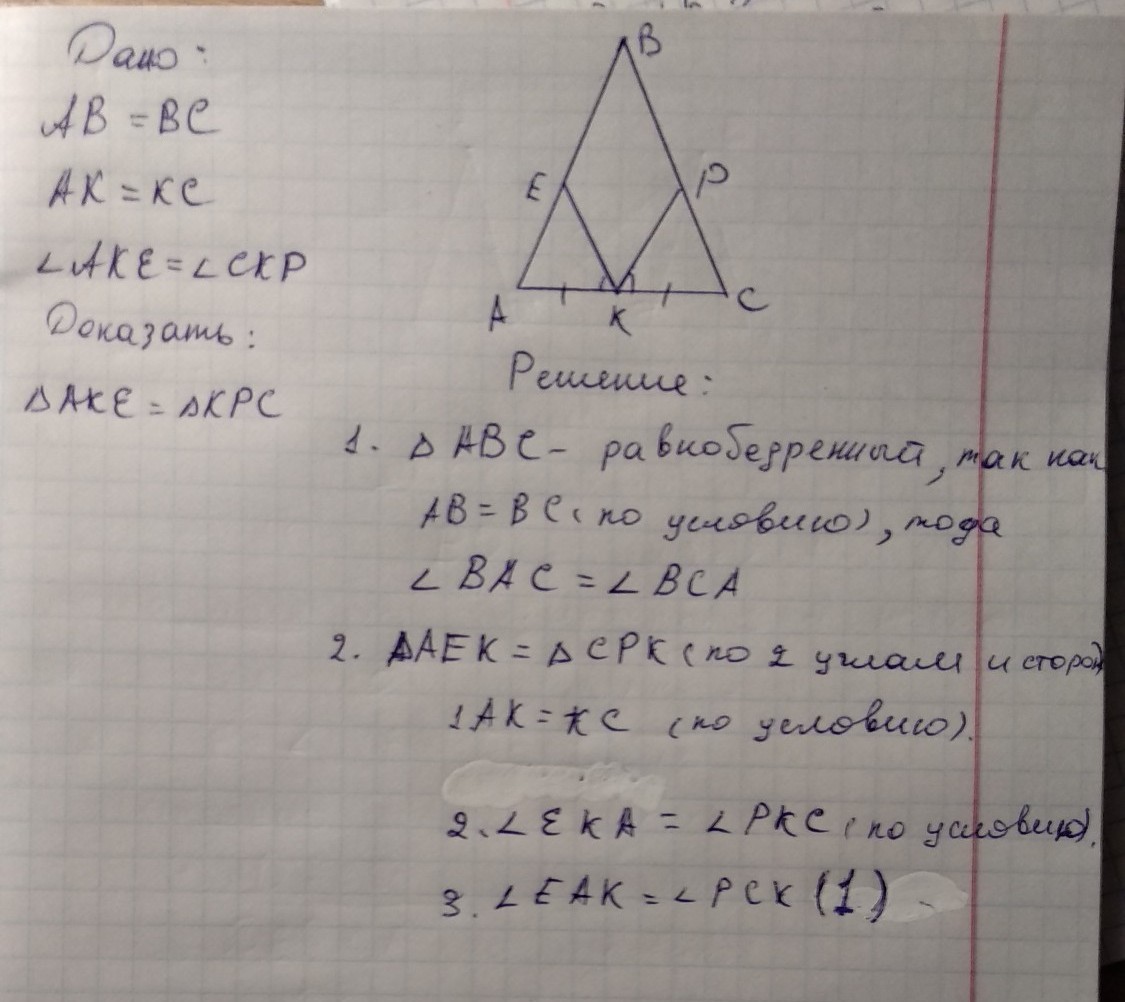 Дано:
AB = BC
AK = KC
∠AKE = ∠CKP
Доказать:
△AKE = △KPC
B
E
P
A
K
C
Решение:
1. △ABC - равнобедренный, так как
AB = BC (по условию), тода
∠BAC = ∠BCA
2. △AEK = △CPK (по 2 углам и сторон
1 AK = KC (по условию).
2. ∠EKA = ∠PKC (по условию).
3. ∠EAK = ∠PCK (1)